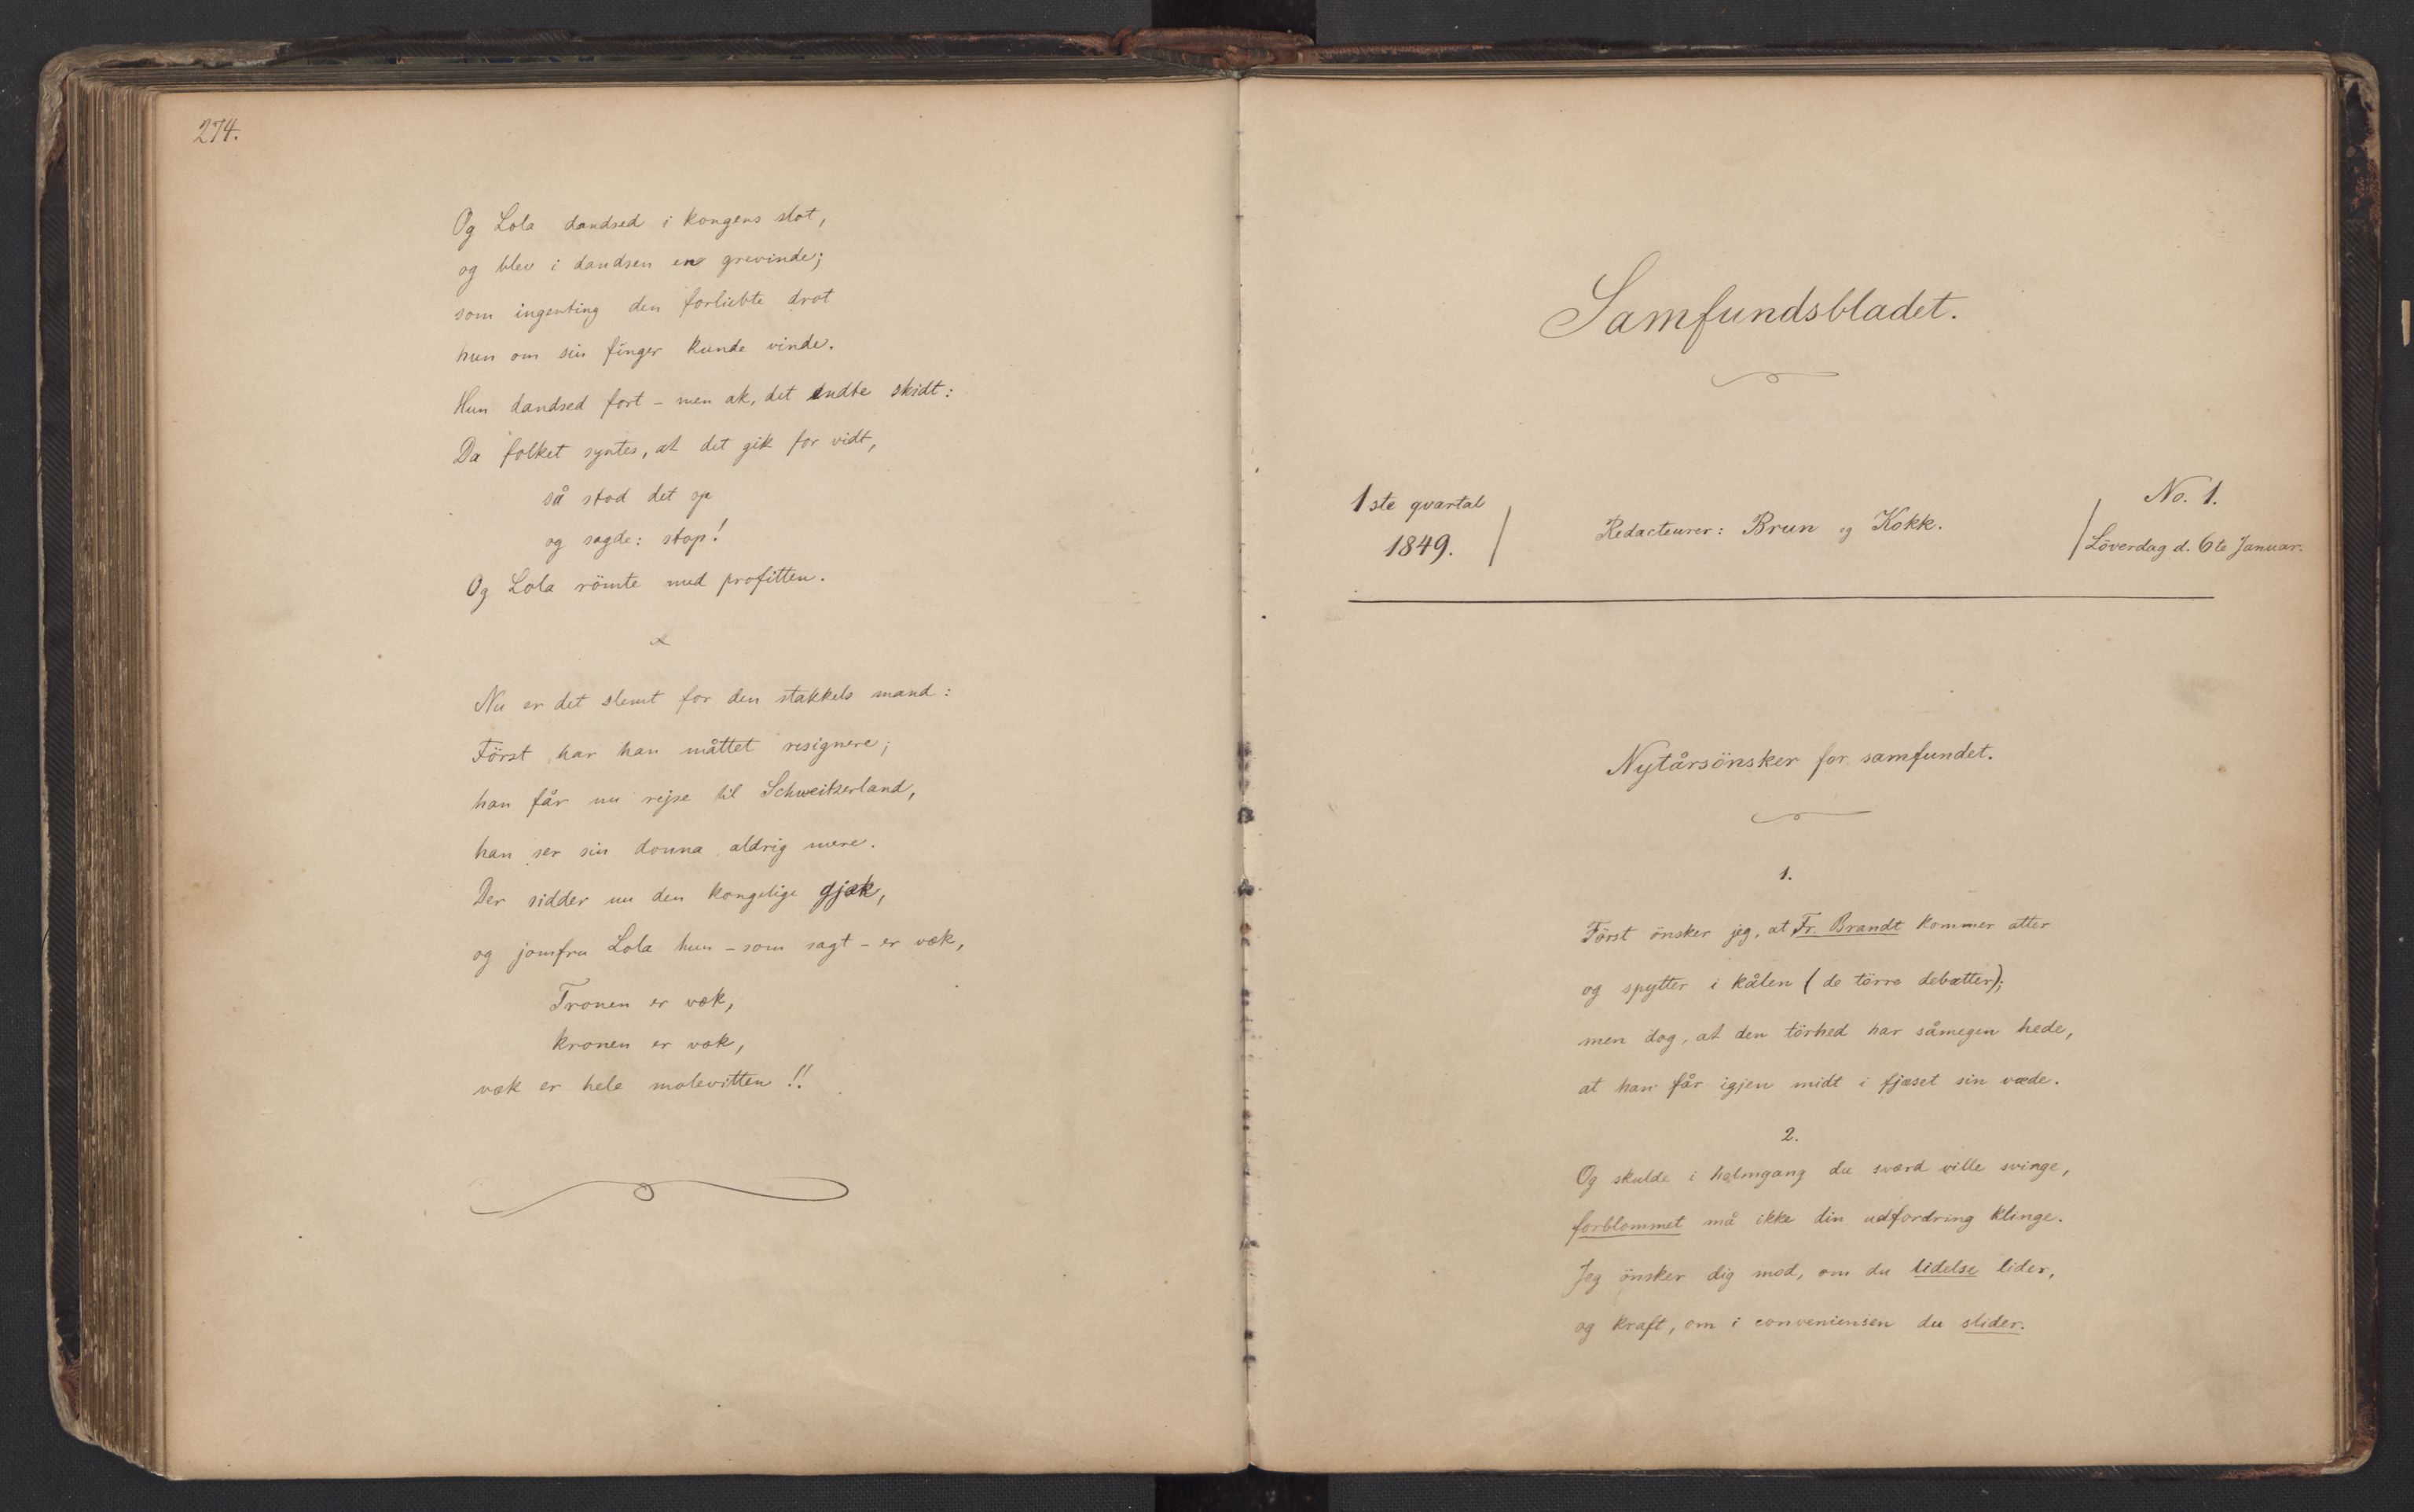 274.
Og Lola dandsed i kongens slot,
og blev i dandsen en grevinde;
som ingenting den forliebte drot
hun om sin finger kunde vinde.
Hun dandsed fort – men ak, det endte skidt:
Da folket syntes, at det gik for vidt,
så stod det op
og sagde: stop!
Og Lola römte med profitten.
Nu er det slemt for den stakkels mand:
Först har han måttet resignere;
han får nu rejse til Schweitserland,
han ser sin donna aldrig mere.
Der sidder nu den kongelige gjæk,
og jomfru Lola hun – som sagt – er væk,
Tronen er væk,
kronen er væk,
væk er hele molevitten!!
Samfundsbladet.
1ste qvartal
1849.
Redacteurer: Brun og Kokk.
No. 1.
Löverdag d. 6te Januar.
Nytårsönsker for samfundet.
1.
Först önsker jeg, at Fr. Brandt kommer atter
og spytter i kålen (de törre debatter);
men dog, at den törhed har såmegen hede,
at han får igjen midt i fjæset sin væde.
2.
Og skulde i holmgang du sværd ville svinge,
forblommet må ikke din udfordring klinge.
Jeg önsker dig mod, om du lidelse lider,
og kraft, om i conveniensen du slider.